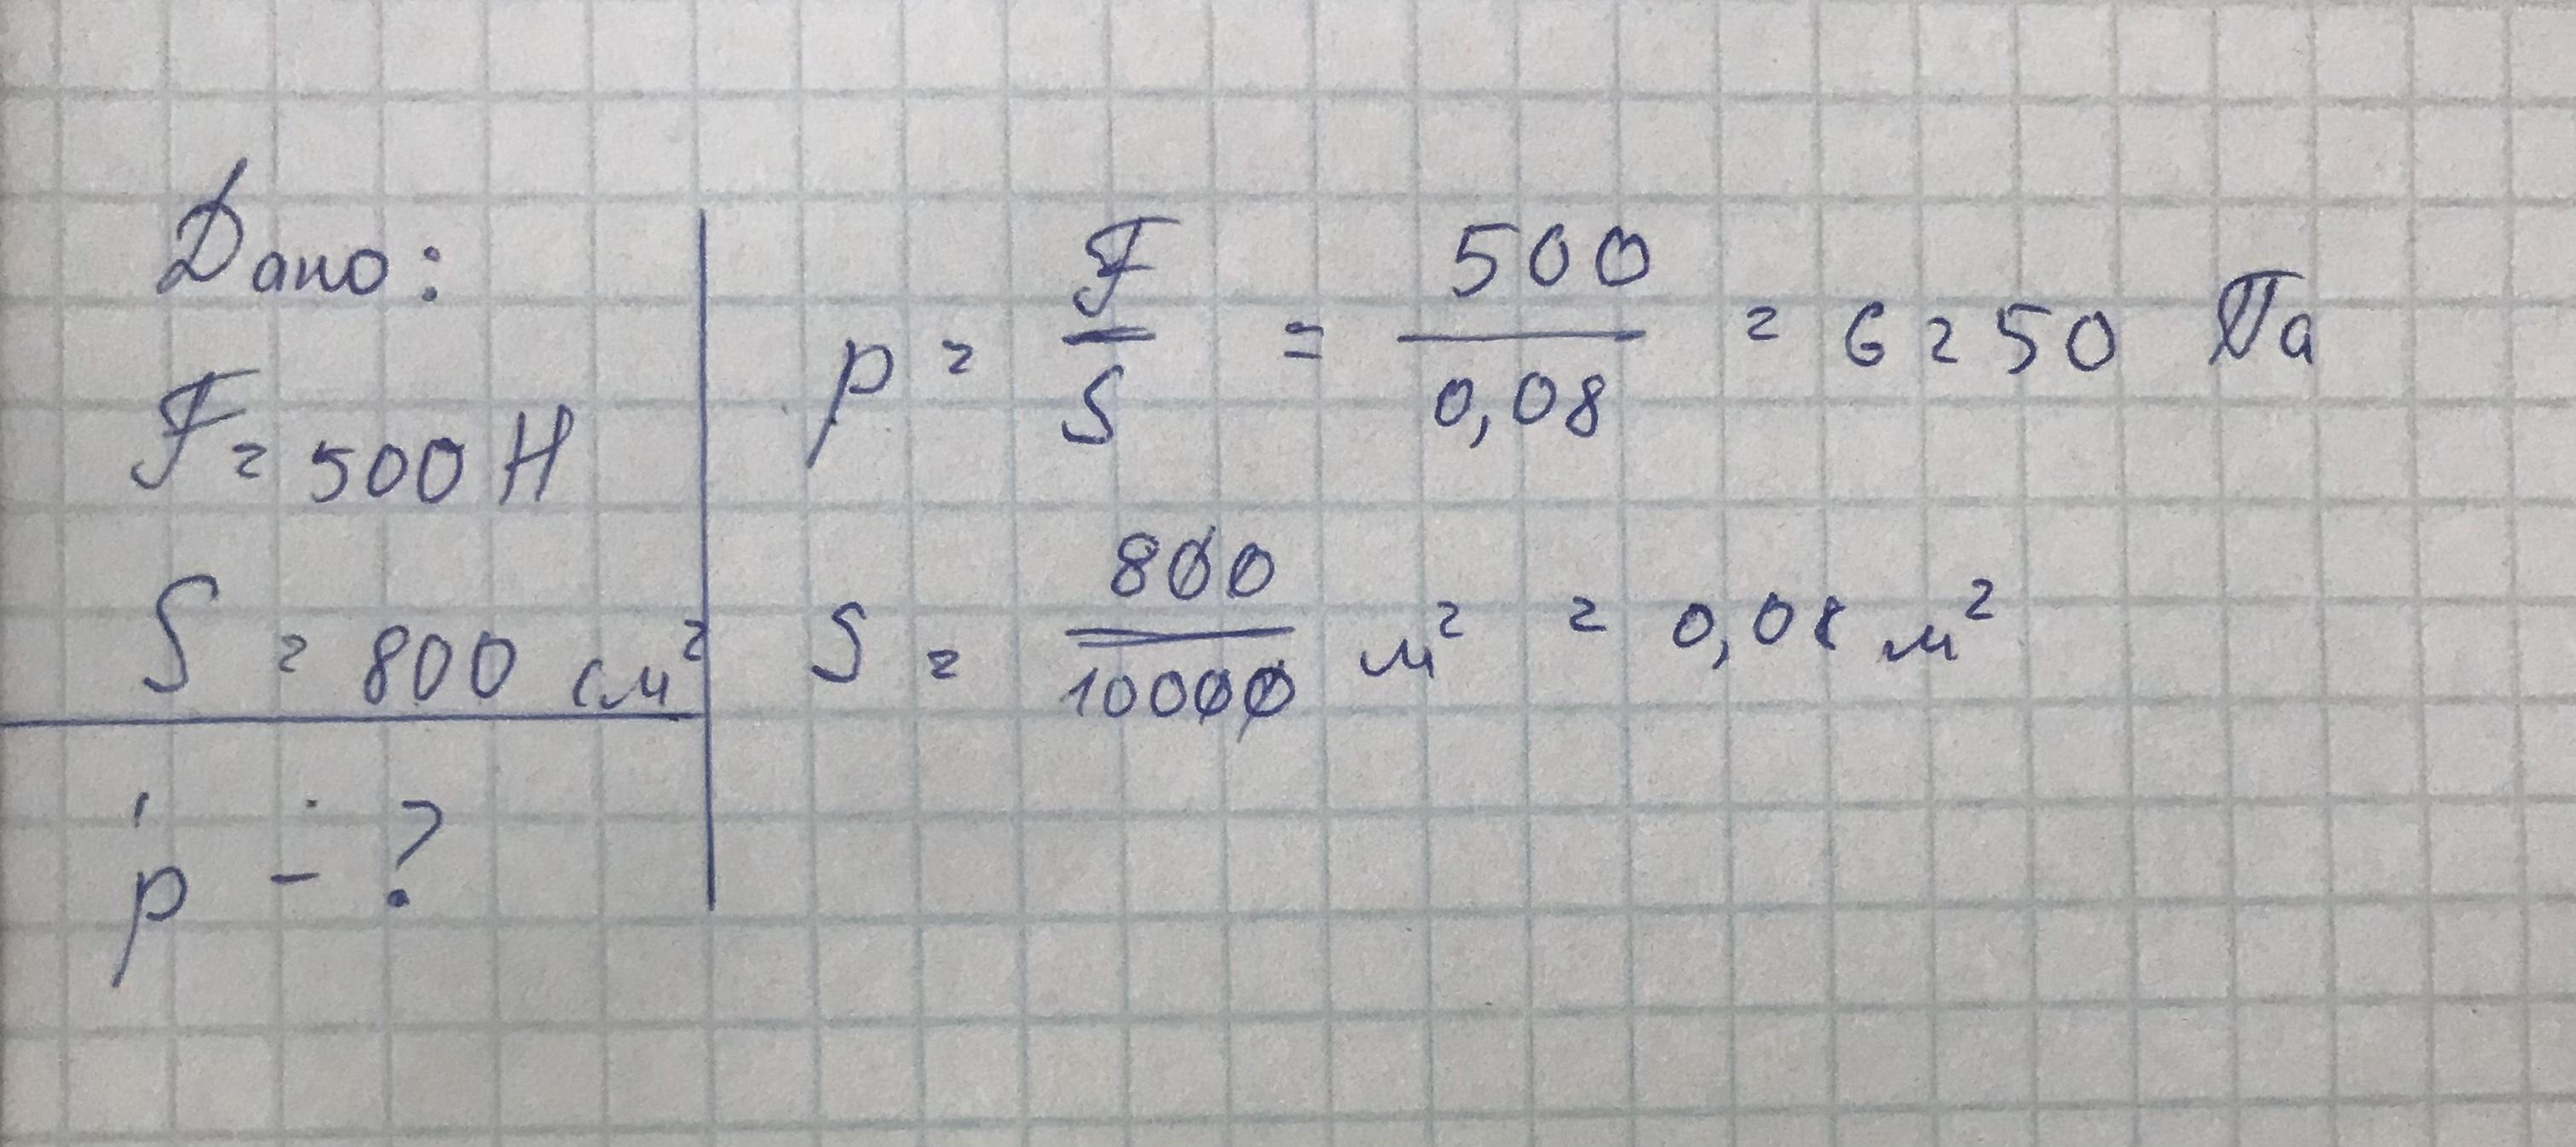 Дано:
F = 500 Н
S = 800 см²
p - ?
p = F/S = 500/0,08 = 6250 Па
S = 800/10000 м² = 0,08 м²